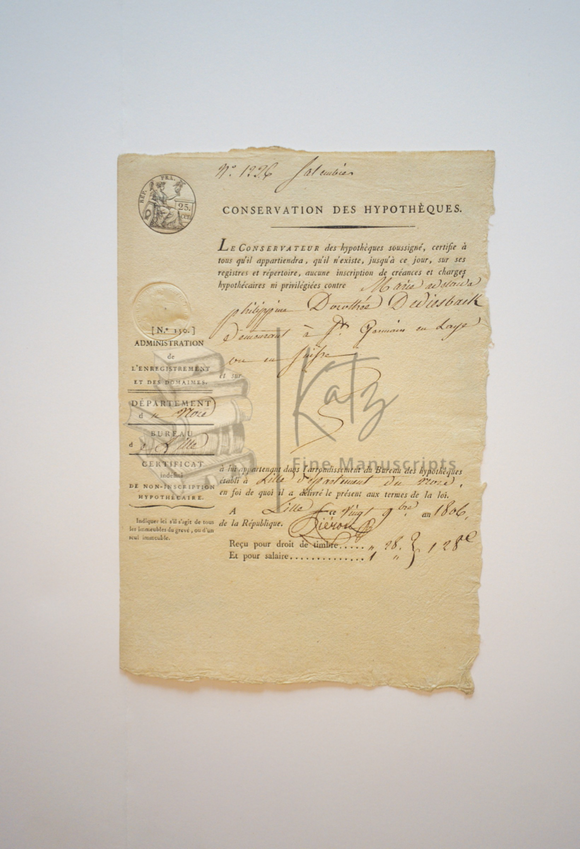 N.º 1236
REP. FRA.
25.
CEN.
CONSERVATION DES HYPOTHÈQUES.
LE CONSERVATEUR des hypothèques soussigné, certifie à
tous qu'il appartiendra, qu'il n'existe, jusqu'à ce jour, sur ses
registres et répertoire, aucune inscription de créances et charges
hypothécaires ni privilégiées contre Marie
philippine Dorothée
Demeurant à St. Germain en Laye
ou en Suisse
et sur
[N.º 159.]
ADMINISTRATION
de
L'ENREGISTREMENT
ET DES DOMAINES.
DÉPARTEMENT
du Nord
BUREAU
de Lille
CERTIFICAT
indéfini
DE NON-INSCRIPTION
HYPOTHÉCAIRE.
Indiquer ici s'il s'agit de tous
les immeubles du grevé, ou d'un
seul immeuble.
Katz
Fine Manuscripts
à lui appartenant dans l'arrondissement du Bureau des hypothèques
établi à Lille département du Nord,
en foi de quoi il a délivré le présent aux termes de la loi.
A Lille ce vingt 9bre an 1806.
de la République.
Reçu pour droit de timbre..... " 28.
Et pour salaire............... 1 "
1 28c